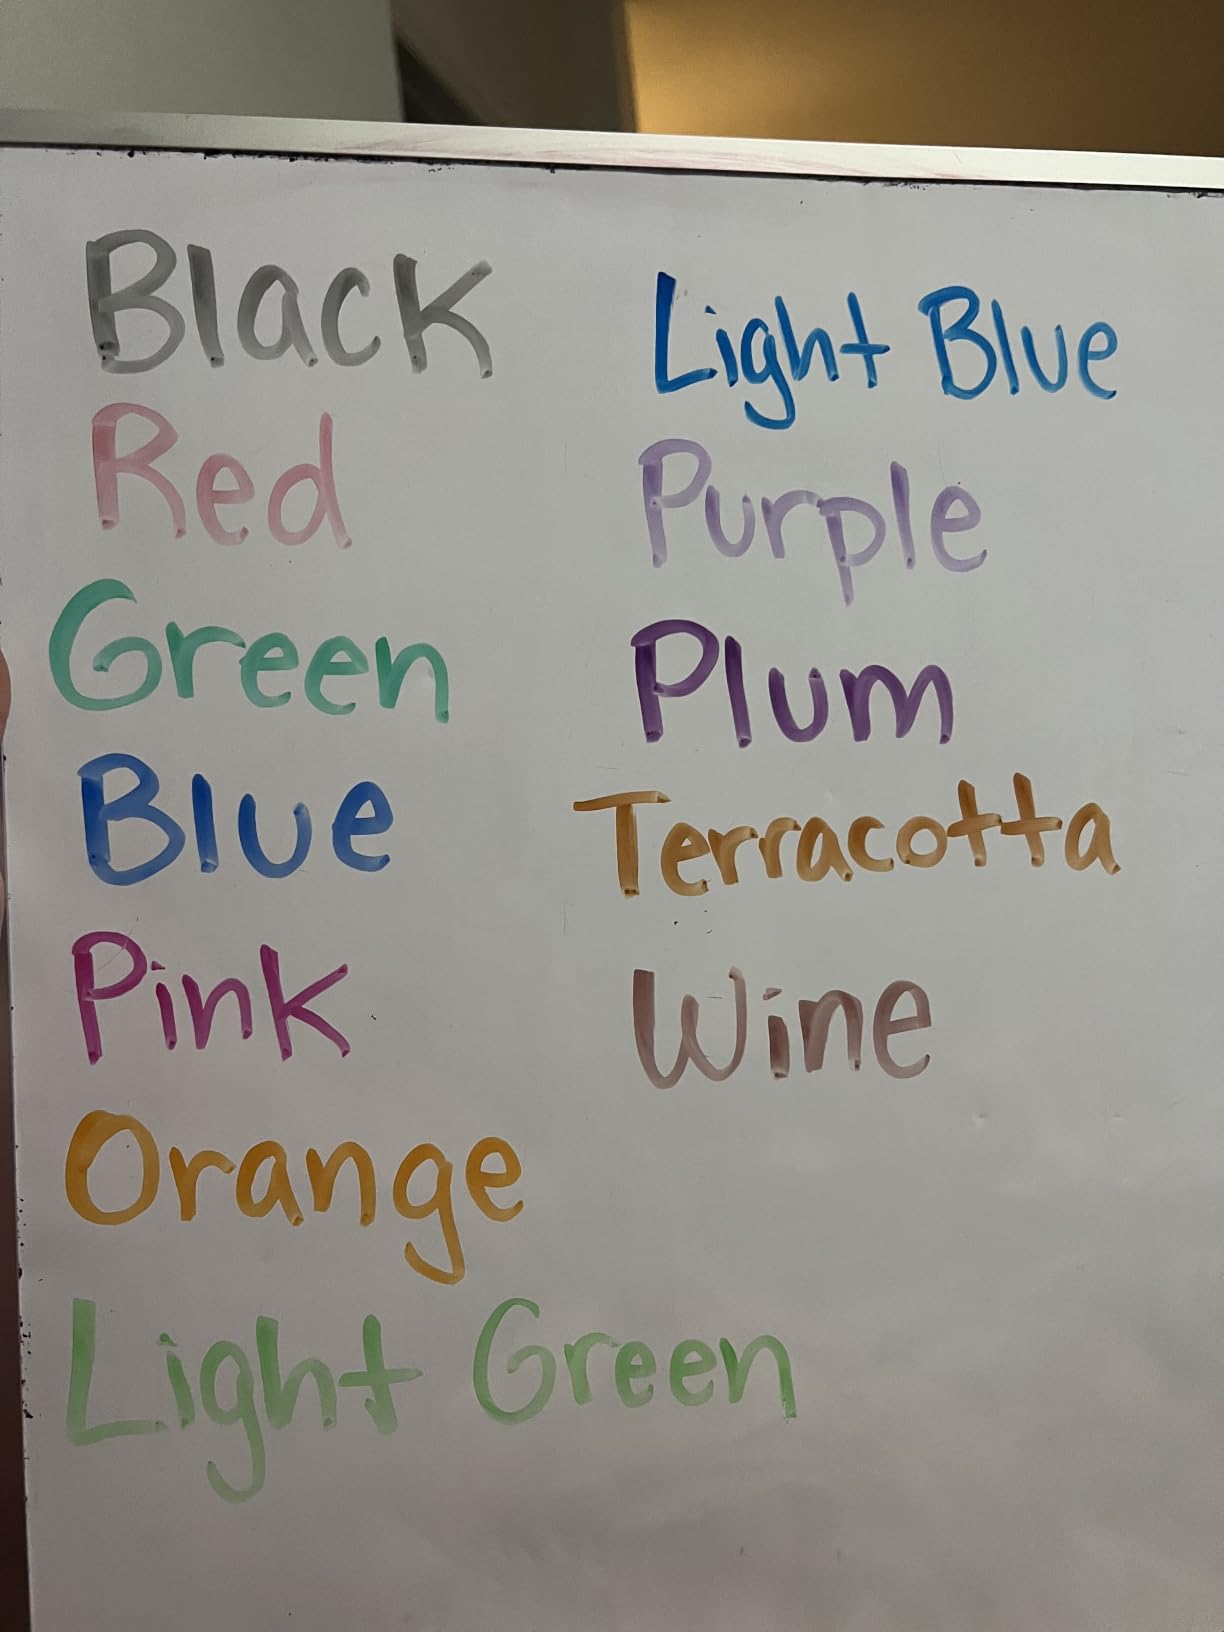 Black
Red
Green
Blue
Pink
Orange
Light Green
Light Blue
Purple
Plum
Terracotta
Wine